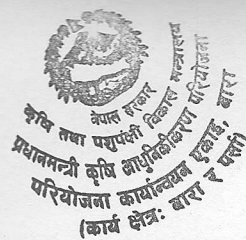 नेपाल सरकार
कृषि तथा पशुपंक्षी विकास मन्त्रालय
प्रधानमन्त्री कृषि आधुनिकीकरण परियोजना
परियोजना कार्यान्वयन एकाइ, बारा
(कार्य क्षेत्र: बारा र पर्सा